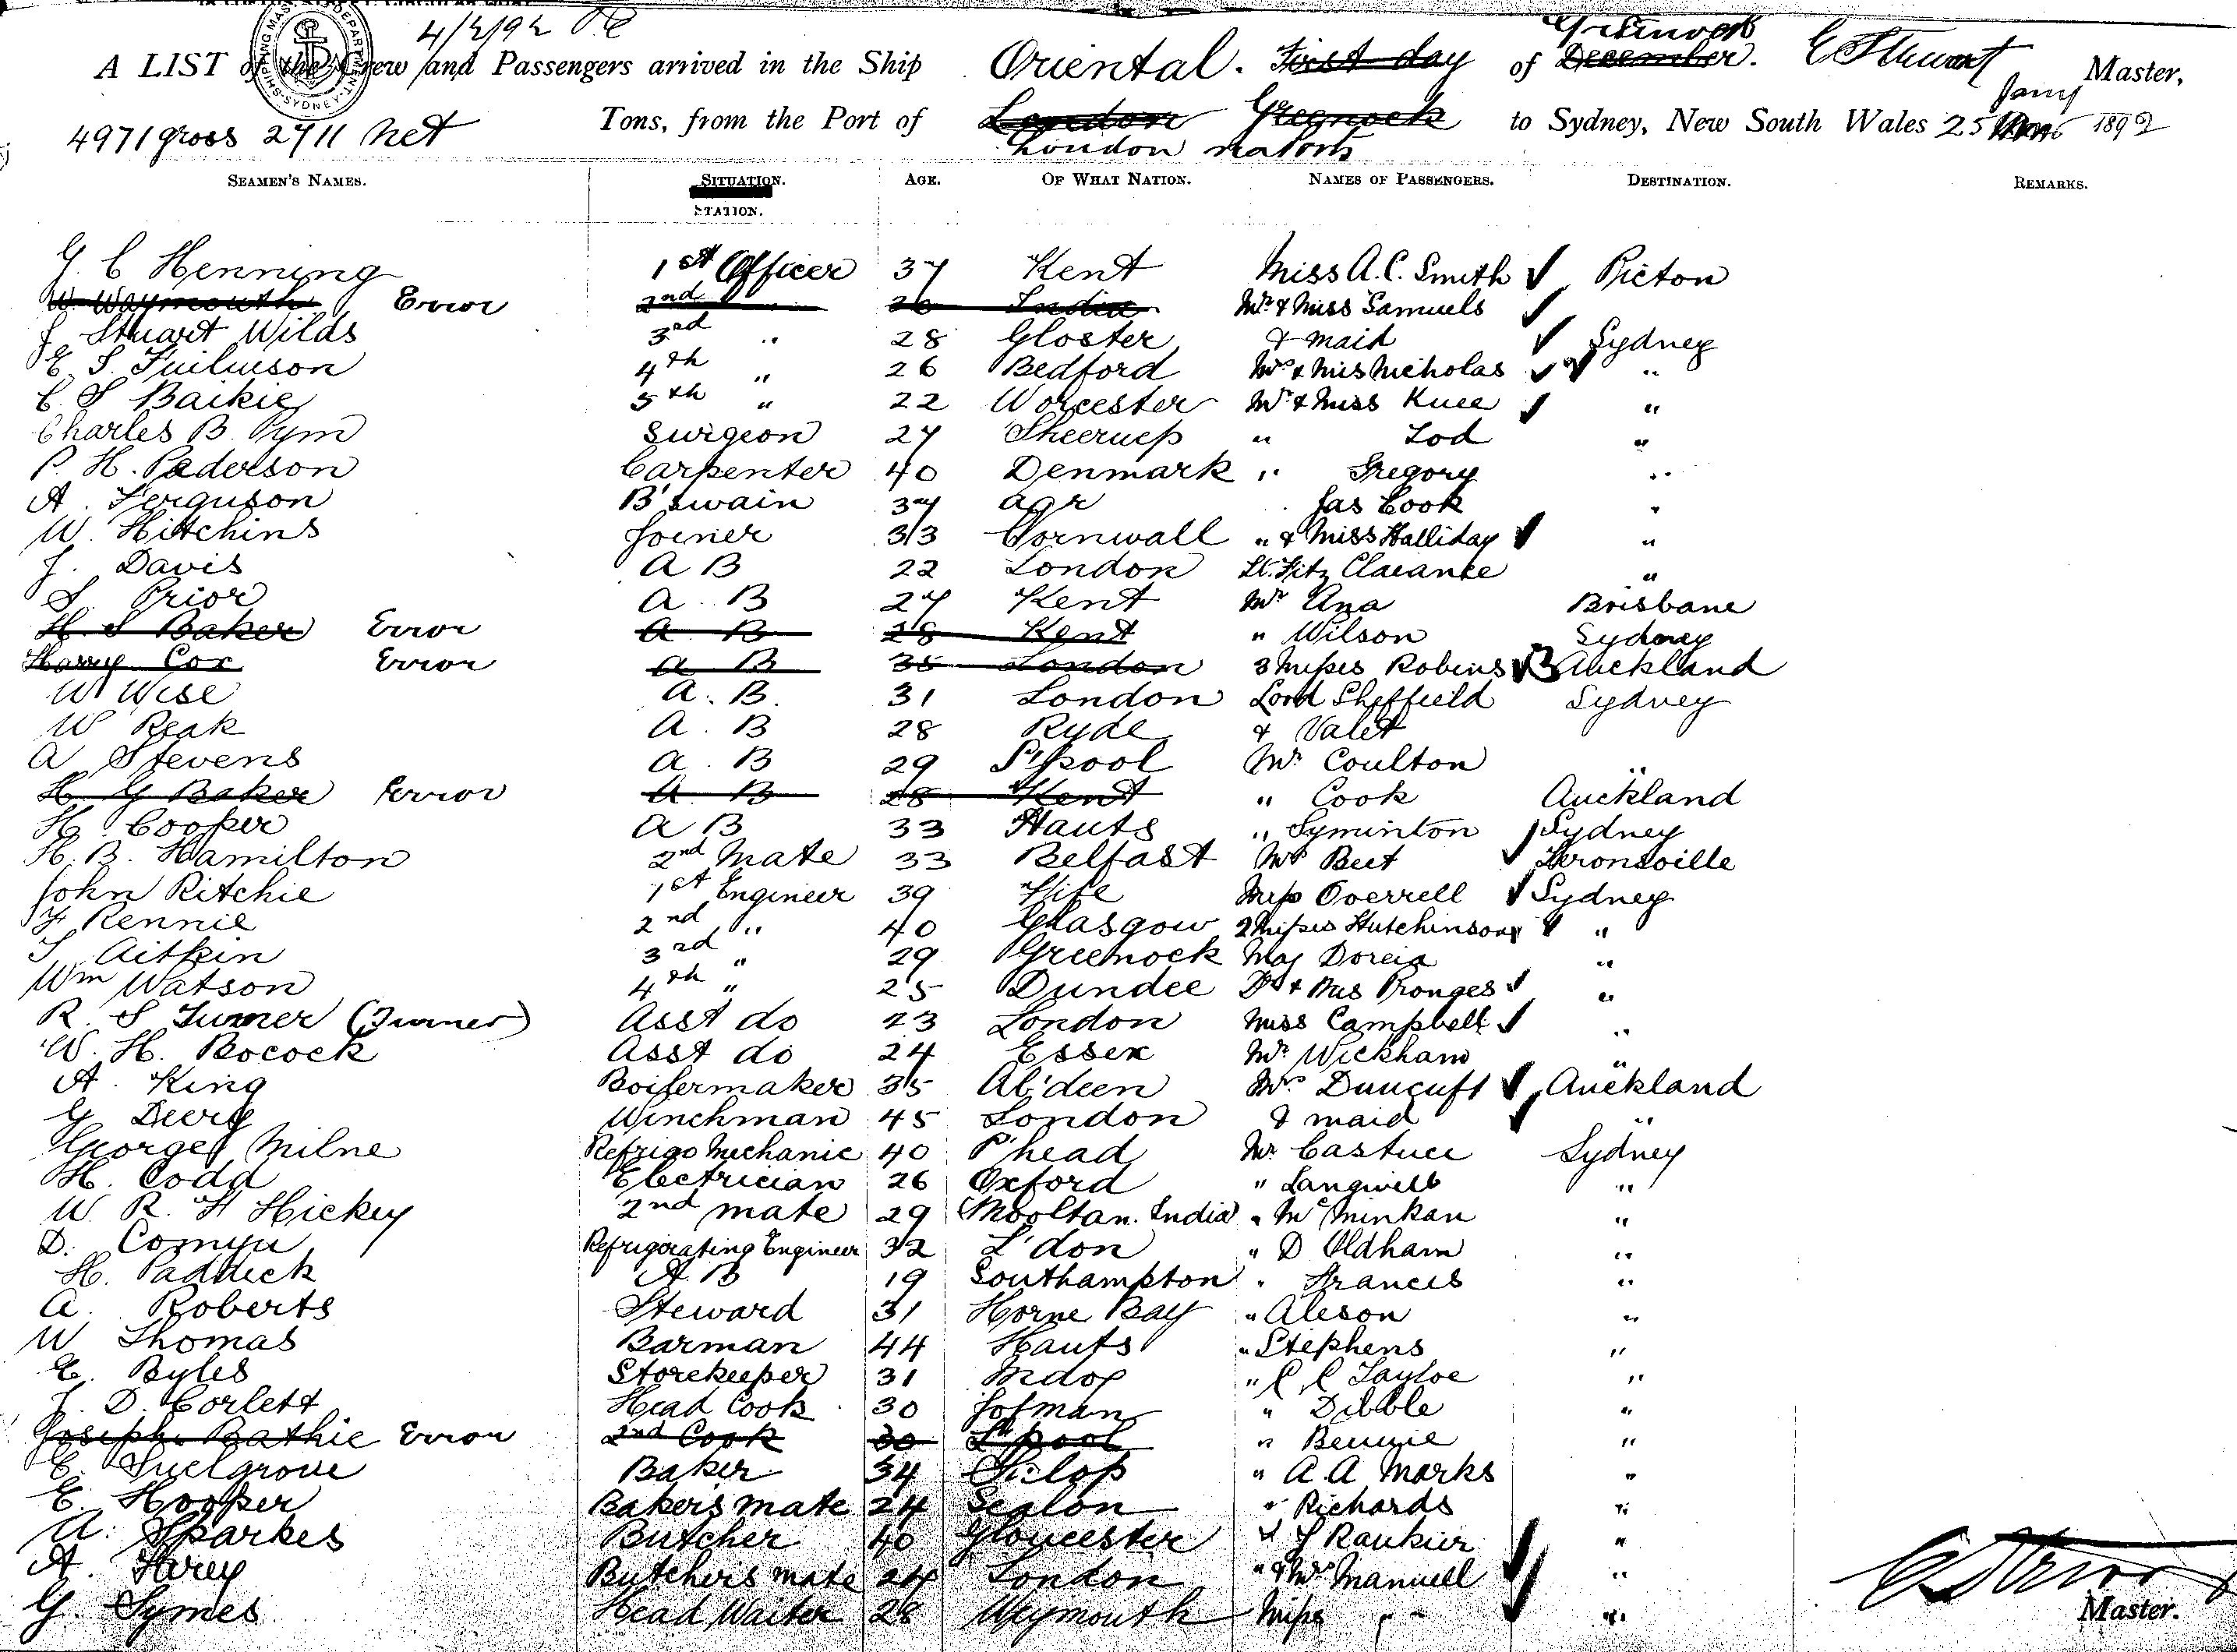 4/2/92
Greenock
A LIST of the Crew and Passengers arrived in the Ship Oriental. First day of December. Master,
4971 gross 2711 net Tons, from the Port of London Greenock to Sydney, New South Wales 25 Jany 1892
London
SEAMEN'S NAMES. SITUATION. AGE. OF WHAT NATION. NAMES OF PASSENGERS. DESTINATION. REMARKS.
STATION.
G. C Henning 1st Officer 37 Kent Miss A. C. Smith Picton
W Waymouth Error 2nd 26 India Mr & Miss Samuels
J Stuart Wilds 3rd " 28 Gloster & maid Sydney
E. S. 4th " 26 Bedford Nicholas "
C S Baikie 5th " 22 Worcester Mr & Miss "
Charles B. Pym Surgeon 27 " "
P. H. Paderson Carpenter 40 Denmark " Gregory "
A. Ferguson B'swain 37 Jas Cook "
W. Hitchins Joiner 33 Cornwall " & Miss Halliday "
J. Davis A B 22 London Lt. Fitz Clarance "
S. Prior A. B 27 Kent Mr Brisbane
H. S Baker Error A B 28 Kent " Wilson Sydney
Harry Cox Error A B 35 London 3 Misses Robins 3 Auckland
W Wise A. B. 31 London Lord Sheffield Sydney
W Reak A. B 28 Ryde & Valet
A Stevens A. B 29 L'pool Mr Coulton "
H G Baker Error A B 28 Kent " Cook Auckland
H. Cooper A B 33 Hants " Syminton Sydney
H. B. Hamilton 2nd Mate 33 Belfast
John Ritchie 1st Engineer 39 Fife Miss Overrell Sydney
F Rennie 2nd " 40 Glasgow 2 Misses Hutchinson "
J Aitkin 3rd " 29 Greenock Maj "
Wm Watson 4th " 25 Dundee "
R. S Turner (Turner) Asst do 23 London Miss Campbell "
W. H. Bocock Asst do 24 Essex Mr Wickham "
A. King Boilermaker 35 Ab'deen Auckland
G Winchman 45 London & maid "
George Milne Refrigo Mechanic 40 Mr Sydney
H. Codd Electrician 26 Oxford " "
W. R. H Hickey 2nd mate 29 Mooltan. India " "
D. Comyn Refrigerating Engineer 32 L'don " D Oldham "
H. Paddick A. B 19 Southampton " Frances "
A. Roberts Steward 31 Horne Bay " Aleson "
W Thomas Barman 44 Hants " Stephens "
E. Byles Storekeeper 31 " C C "
J. D. Corlett Head Cook 30 " Dibble "
Joseph Bathie Error 2nd Cook 30 L'pool " "
E. Baker 34 " A. A Marks "
E. Hooper Baker's mate 24 " Richards "
A. Sparkes Butcher 40 Gloucester "
A. Butcher's mate 24 London "
G. Symes Head Waiter 28 Weymouth Miss "
Master.